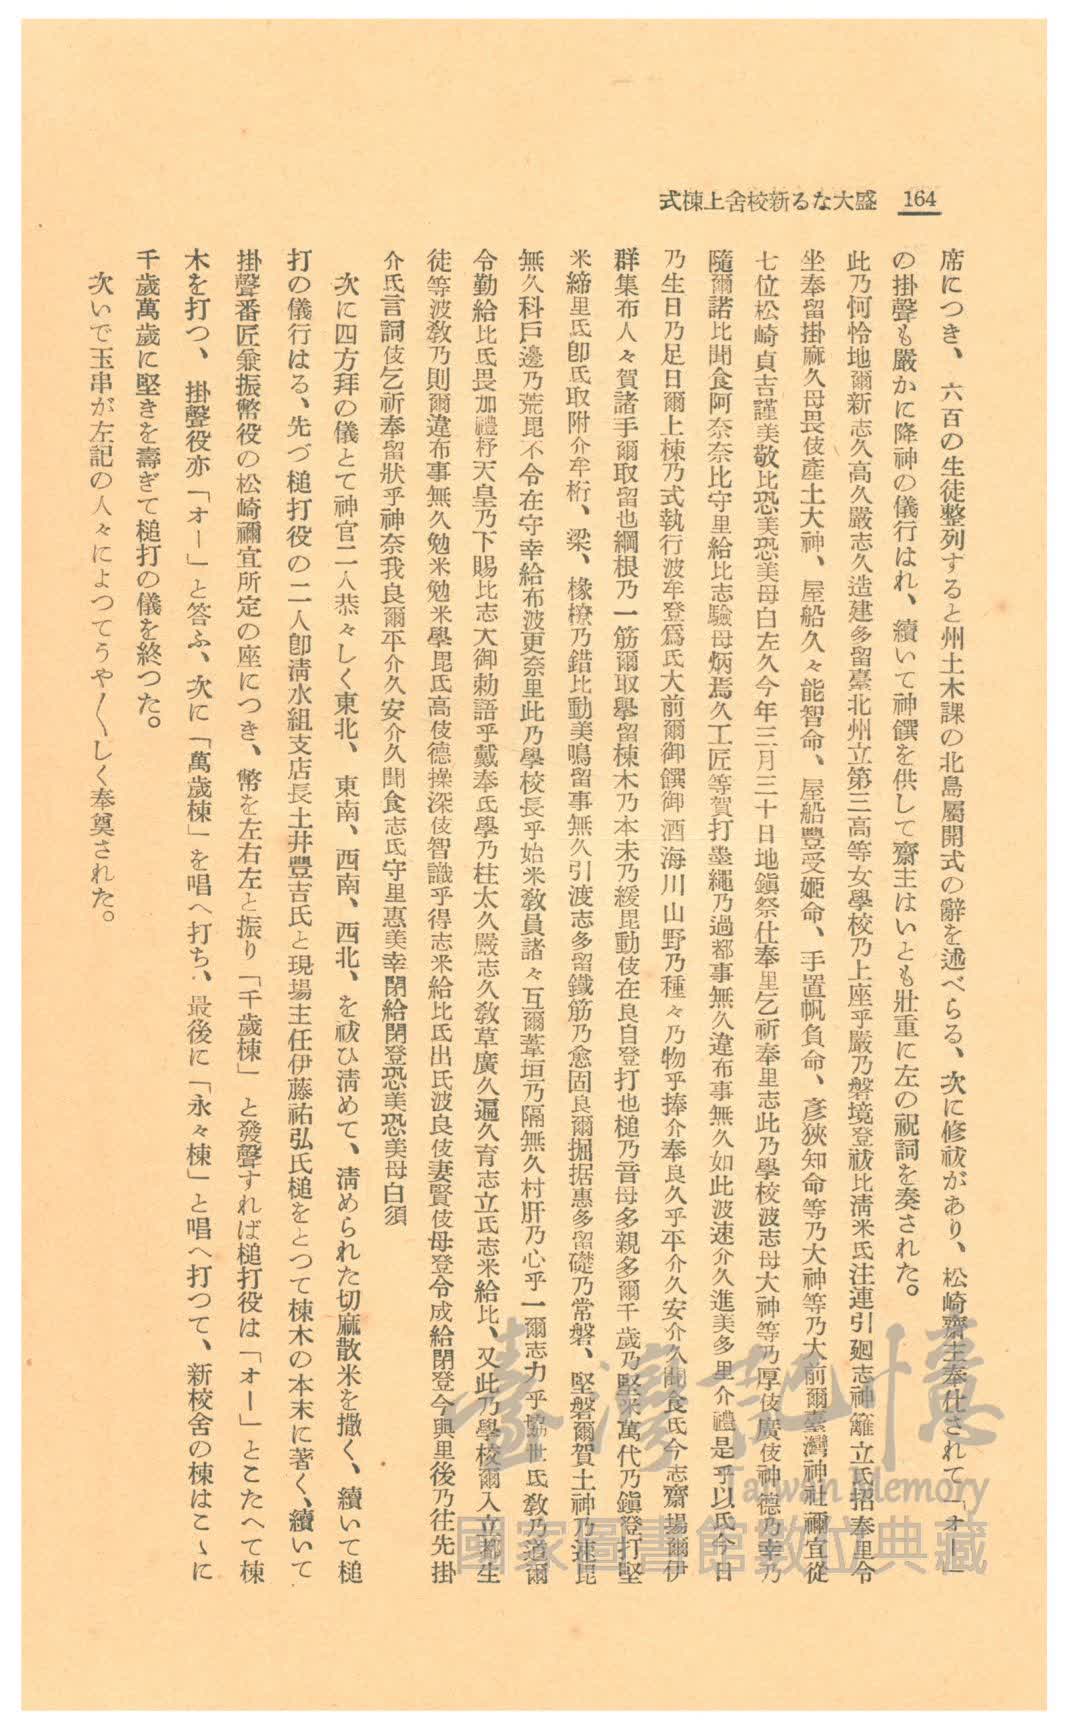 164
盛大なる新校舍上棟式
席につき、六百の生徒整列すると州土木課の北島屬開式の辭を述べらる、次に修祓があり、松崎齋主奉仕されて「オー」
の掛聲も嚴かに降神の儀行はれ、續いて神饌を供して齋主はいとも壯重に左の祝詞を奏された。
此乃怜地爾新志久高久嚴志久造建多留臺北州立第三高等女學校乃上座乎嚴乃磐境登祓比淸米氐注連引廻志神籬立氐招奉里令
坐奉留掛麻久母畏伎產土大神、屋船久々能智命、屋船豐受姬命、手置帆負命、彥狹知命等乃大神等乃大前爾臺灣神社禰宜從
七位松崎貞吉謹美敬比恐美恐美母白左久今年三月三十日地鎭祭仕奉里乞祈奉里志此乃學校波志母大神等乃厚伎廣伎神德乃幸乃
隨爾諾比聞食阿奈奈比守里給比志驗母炳焉久工匠等賀打墨繩乃過都事無久違布事無久如此波速介久進美多里介禮是乎以氐今日
乃生日乃足日爾上棟乃式執行波牟登爲氐大前爾御饌御酒海川山野乃種々乃物乎捧介奉良久乎平介久安介久聞食氐今志齋場爾伊
群集布人々賀諸手爾取留也綱根乃一筋爾取擧留棟木乃本末乃緩毘動伎在良自登打也槌乃音母多親多爾千歲乃堅米萬代乃鎭登打堅
米締里氐卽氐取附介牟桁、梁、椽橑乃錯比動美鳴留事無久引渡志多留鐵筋乃愈固良爾掘据惠多留礎乃常磐、堅磐爾賀土神乃速毘
無久科戶邊乃荒毘不令在守幸給布波更奈里此乃學校長乎始米敎員諸々互爾葦垣乃隔無久村肝乃心乎一爾志力乎協世氐敎乃道爾
令勤給比氐畏加禮杼天皇乃下賜比志大御勅語乎戴奉氐學乃柱太久嚴志久敎草廣久遍久育志立氐志米給比、又此乃學校爾入立都生
徒等波敎乃則爾違布事無久勉米勉米學毘氐高伎德操深伎智識乎得志米給比氐出氐波良伎妻賢伎母登令成給閉登今興里後乃往先掛
介氐言詞伎乞祈奉留狀乎神奈我良爾平介久安介久聞食志氐守里惠美幸閉給閉登恐美恐美母白須
次に四方拜の儀とて神官二人恭々しく東北、東南、西南、西北、を祓ひ淸めて、淸められた切麻散米を撒く、續いて槌
打の儀行はる、先づ槌打役の二人卽淸水組支店長土井豐吉氏と現場主任伊藤祐弘氏槌をとつて棟木の本末に著く、續いて
掛聲番匠兼振幣役の松崎禰宜所定の座につき、幣を左右左と振り「千歲棟」と發聲すれば槌打役は「オー」とこたへて棟
木を打つ、掛聲役亦「オー」と答ふ、次に「萬歲棟」を唱へ打ち、最後に「永々棟」と唱へ打つて、新校舍の棟はこゝに
千歲萬歲に堅きを壽ぎて槌打の儀を終つた。
次いで玉串が左記の人々によつてうや〱しく奉奠された。
臺灣記憶
Taiwan Memory
國家圖書館數位典藏